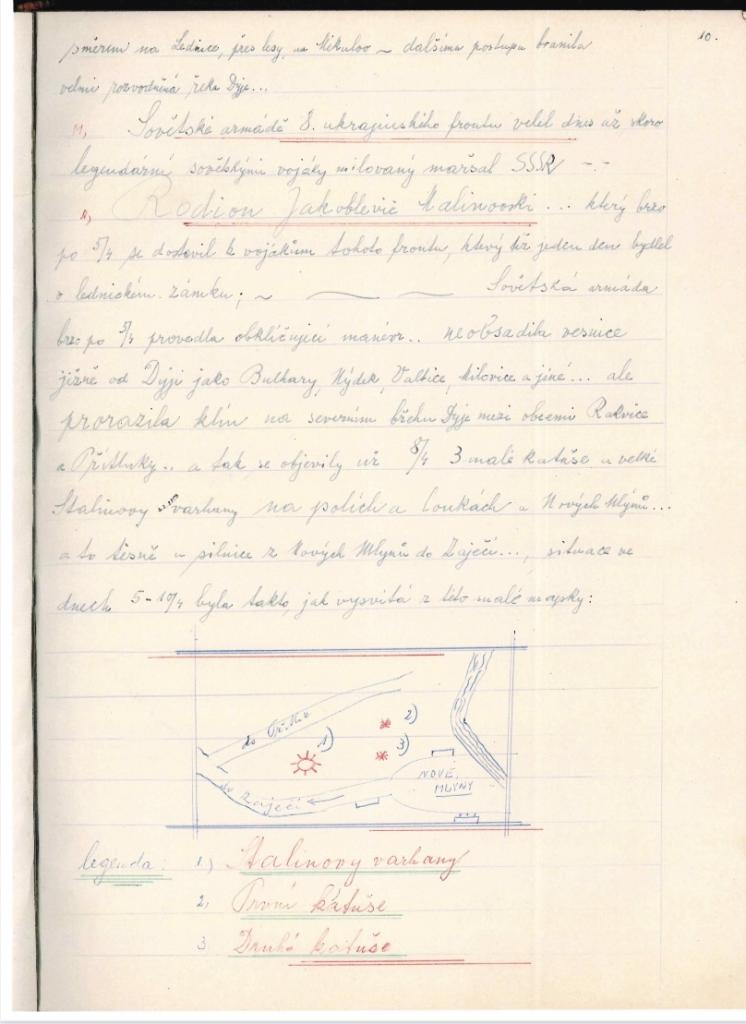 10.
směrem na Lednice, přes lesy, na Mikulov – dalšímu postupu bránila
velmi rozvodněná řeka Dyje...
Sovětské armádě 8. ukrajinského frontu velel dnes už skoro
legendární sovětskými vojáky milovaný maršal SSSR - -
Rodion Jakoblevič Malinovski... který brzo
po 5/4 se dostavil k vojákům tohoto frontu, který též jeden den bydlel
v lednickém zámku; ~ Sovětská armáda
brzo po 5/4 provedla obkličující manévr.. neobsadila vesnice
jižně od Dyji jako Bulhary, Nýdek, Valtice, Milovice a jiné... ale
prorazila klín na severním břehu Dyje mezi obcemi Rakvice
a Přítluky.. a tak se objevily už 8/4 3 malé katuše a velké
Stalinovy varhany na polích a loukách u Nových Mlýnů...
a to těsně u silnice z Nových Mlýnů do Zaječí..., situace ve
dnech 5-10/4 byla takto, jak vysvitá z této malé mapky:
do Přítluk
1)
2)
3)
NOVÉ
MLYNY
do Zaječí
legenda:
1.) Stalinovy varhany
2, První katuše
3 Druhá katuše